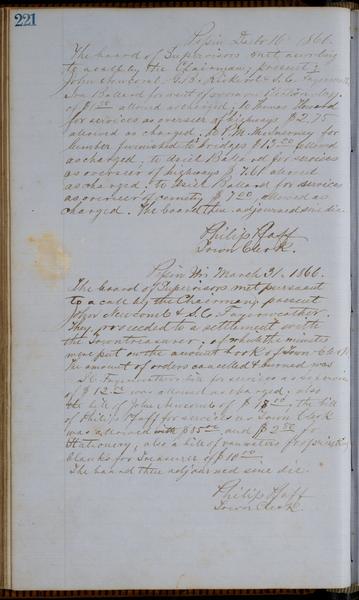 221
Pepin Feb 10 1866.
The board of Supervisors met according
to a call by the Chairman, present:
John Newcomb G. B. S. C. Fayerweather
Ballard for rent of room on Election day
of $1.00 allowed as charged; to Thomas
for services as overseer of highways $2.75
allowed as charged; to P. M.
lumber furnished to bridges $13.00 allowed
as charged; to Ariel Ballard for services
as overseer of highways $7.61 allowed
as charged; to Ariel Ballard for services
as overseer of county $7.00 allowed as
charged. The board then adjourned sine die.
Philip Pfaff
Town Clerk.
Pepin Wis March 31, 1866.
The board of Supervisors met pursuant
to a call by the Chairman, present
John Newcomb & S. C. Fayerweather.
They proceeded to a settlement with
the Town treasurer, of which the minutes
were put on the account book of Town Clerk
The amount of orders cancelled & burned was
S. C. Fayerweather's bill for services as supervisor
of $12.00 was allowed as charged; also
the bill of John Newcomb of $8.00, the bill
of Philip Pfaff for services as Town Clerk
was allowed with $35.00 and $2.50 for
Stationery; also a bill of
blanks for Treasurer of $10.00
The board then adjourned sine die.
Philip Pfaff
Town Clerk.